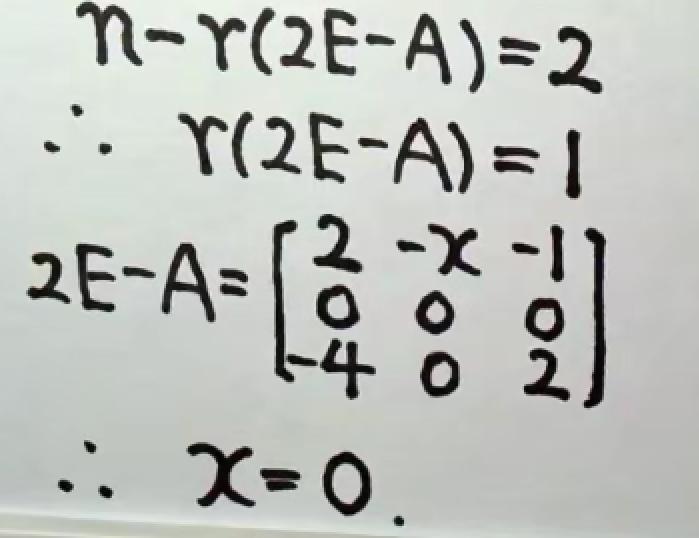 n-r(2E-A)=2
∴ r(2E-A)=1
2E-A=[2 -x -1
0 0 0
-4 0 2]
∴ x=0.